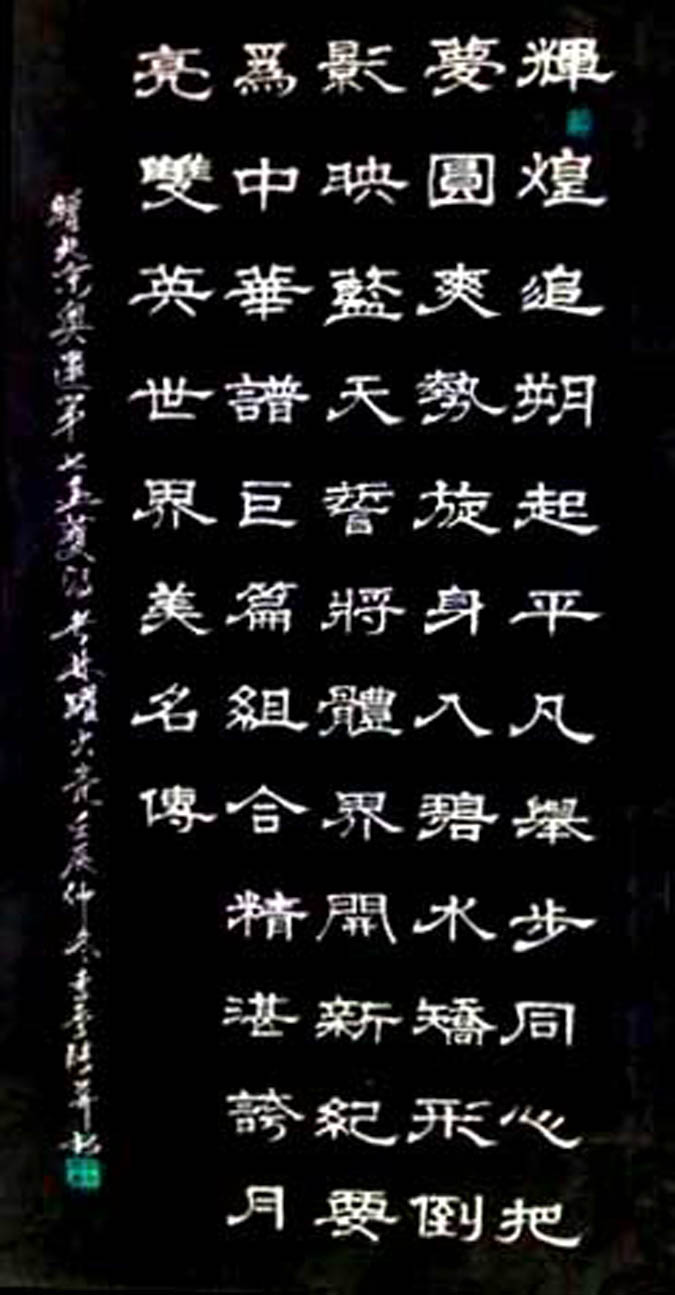 輝煌追朔起平凡舉步同心把
夢圓爽勢旋身入碧水矯形倒
影映藍天誓將體界開新紀要
爲中華譜巨篇組合精湛誇月
亮雙英世界美名傳
贈北京奧運第七金獲得者林躍火亮壬辰仲冬李